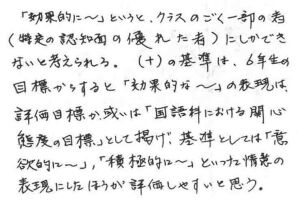 「効果的に〜」というと、クラスのごく一部の者
(特来の認知面の優れた者)にしかでき
ないと考えられる。(+)の基準は、6年生の
目標からすると「効果的な〜」の表現は、
評価目標か、或いは「国語科における関心
態度の目標」として掲げ、基準としては「意
欲的に〜」,「積極的に〜」といった情意の
表現にしたほうが評価しやすいと思う。